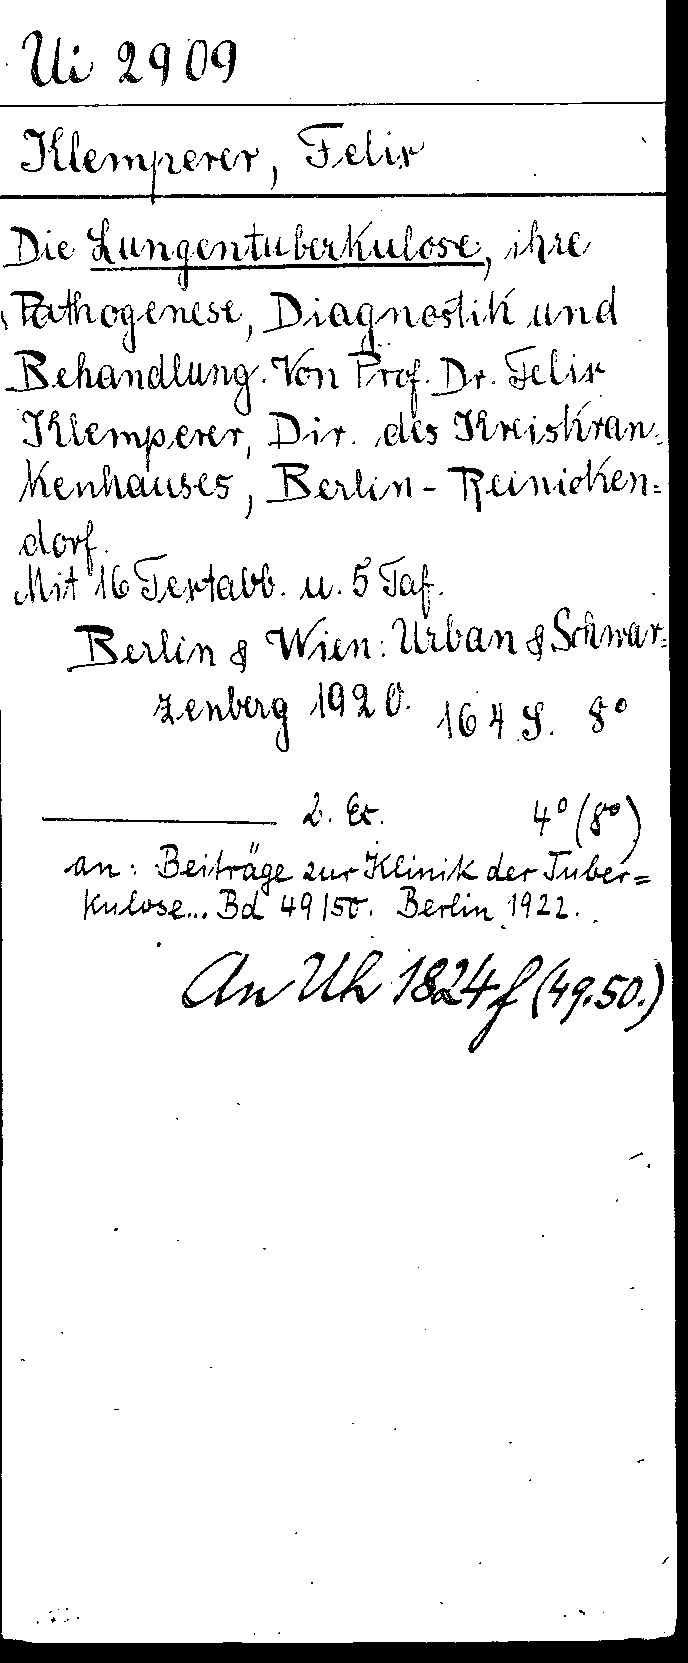 Ui 2909
Klemperer, Felix
Die Lungentuberkulose, ihre
Pathogenese, Diagnostik und
Behandlung. Von Prof. Dr. Felix
Klemperer, Dir. des Kreiskran=
kenhauses, Berlin-Reinicken=
dorf.
Mit 16 Textabb. u. 5 Taf.
Berlin & Wien: Urban & Schwar=
zenberg 1920. 164 S. 8°
2. Ex. 4° (8°)
an: Beiträge zur Klinik der Tuber=
kulose... Bd 49/50. Berlin 1922.
An Uh 1824f (49.50.)